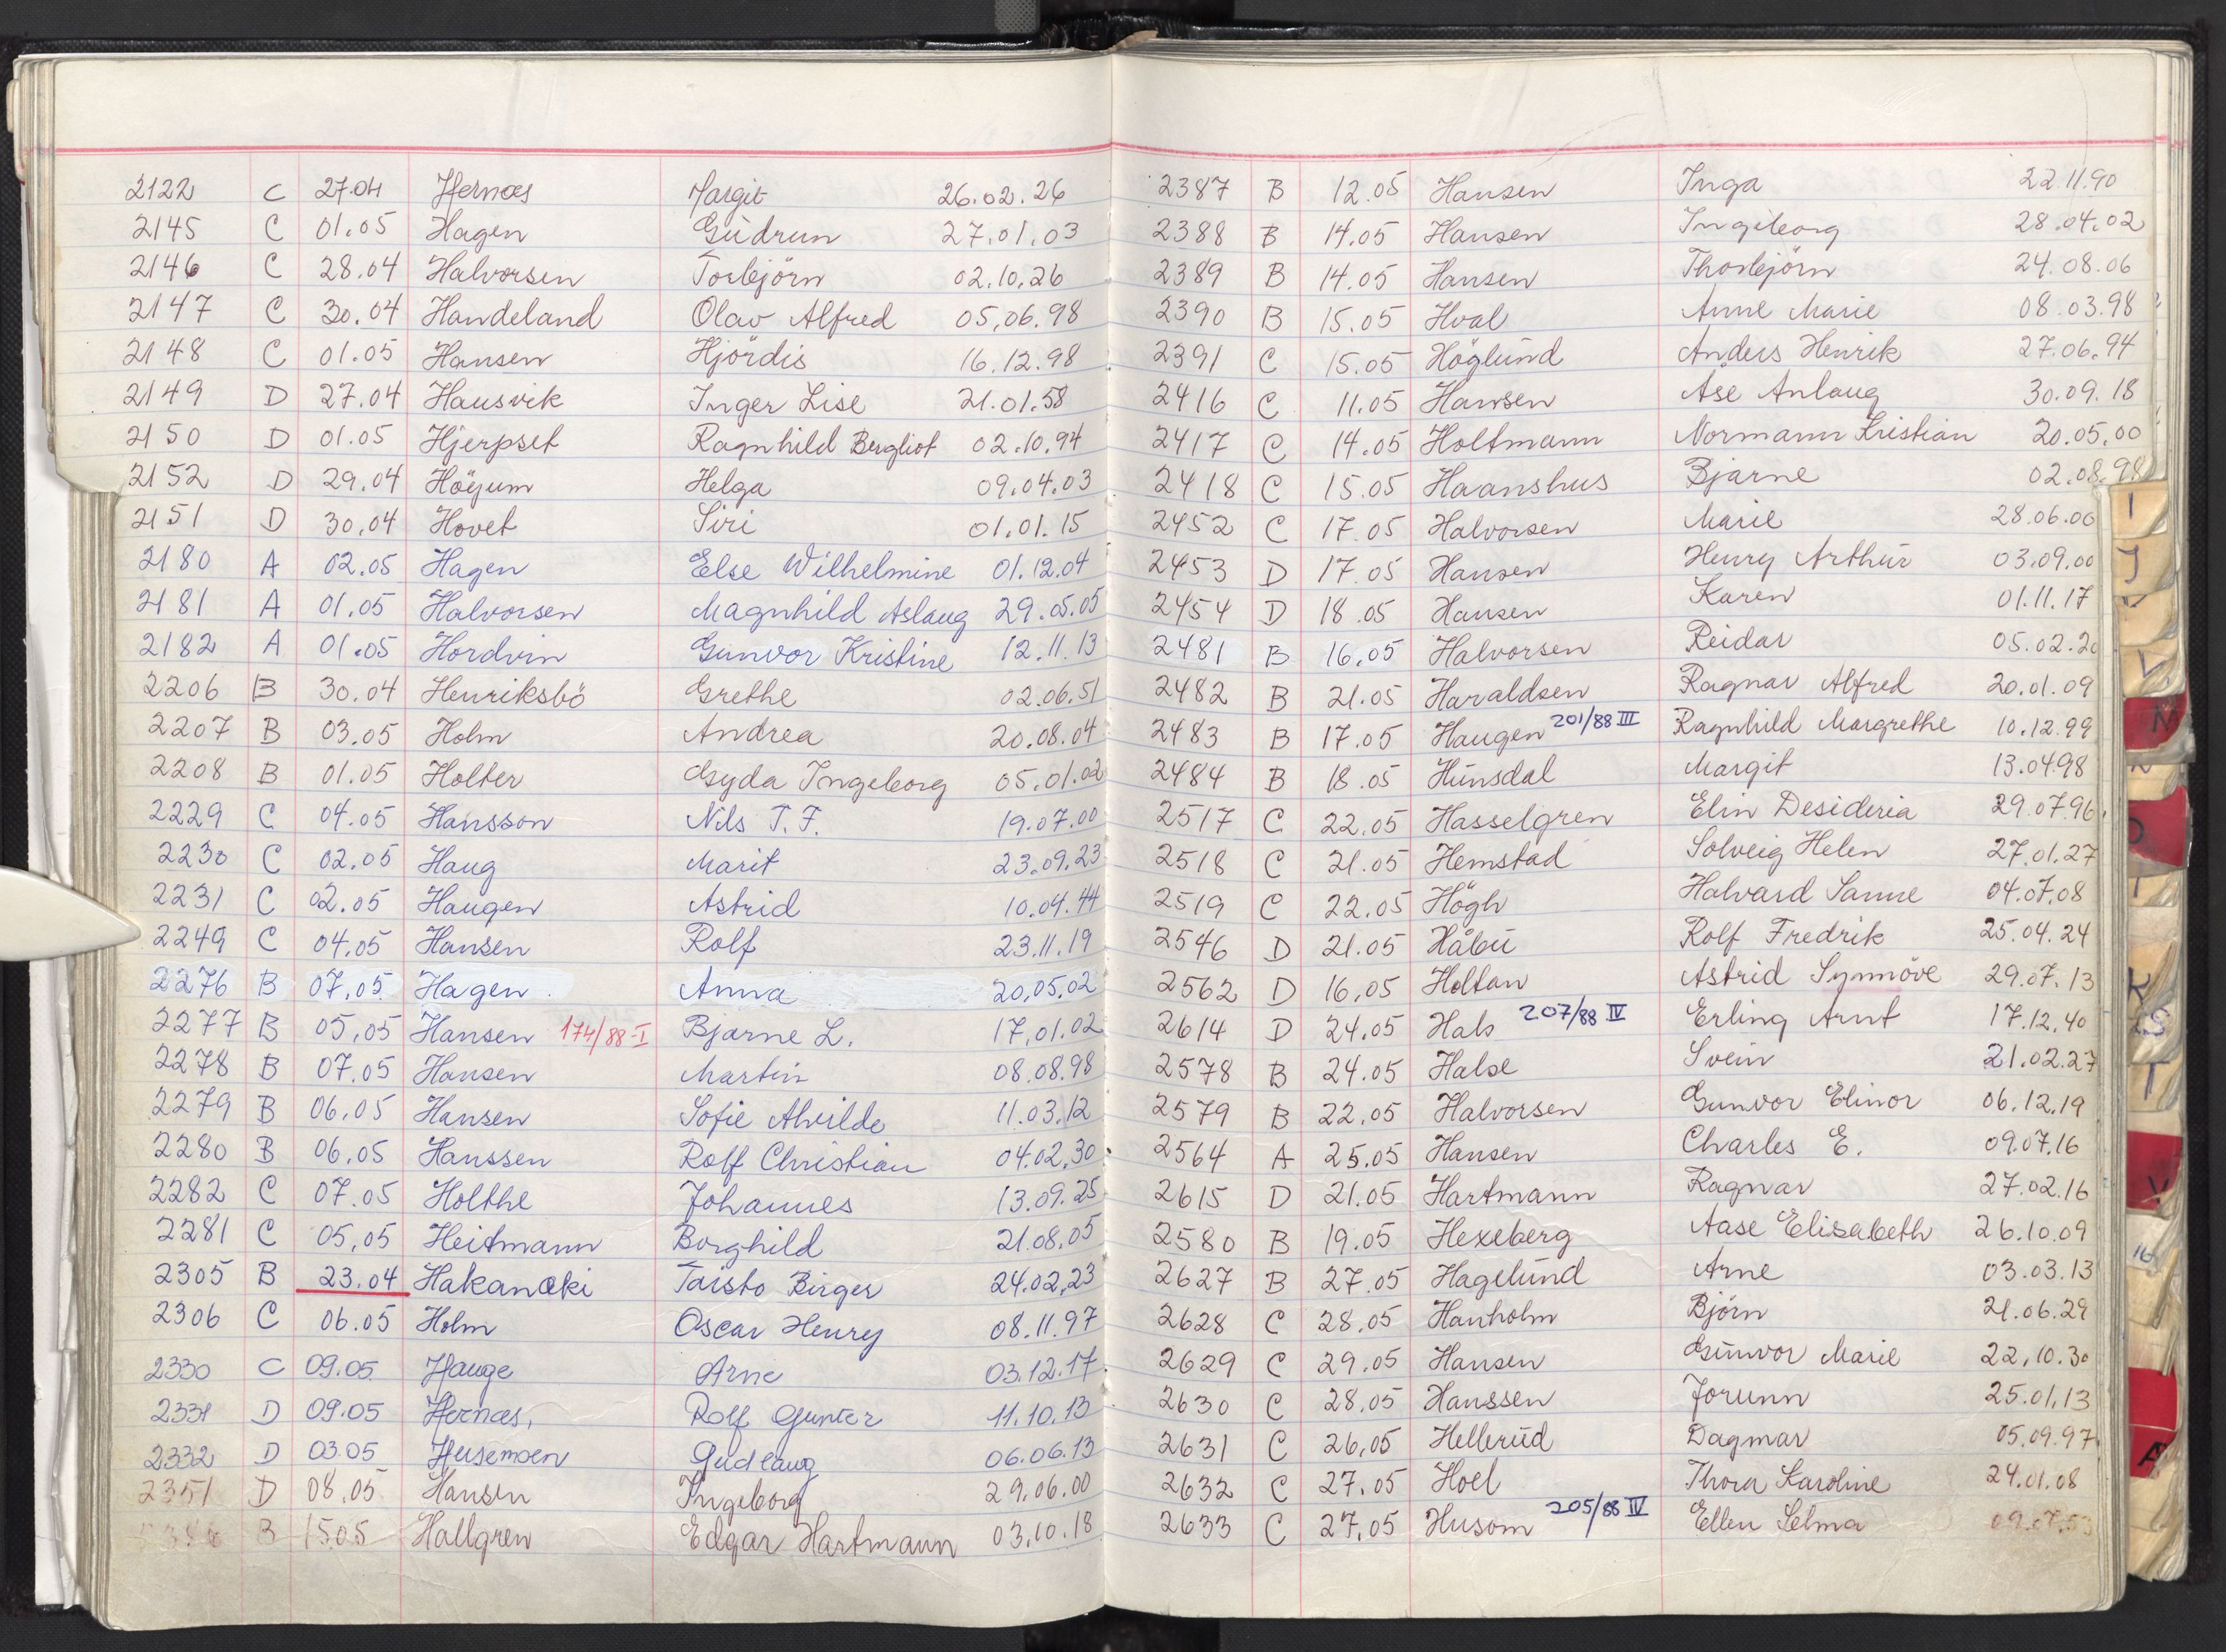 2122 C 27.04 Hernæs Margit 26.02.26
2145 C 01.05 Hagen Gudrun 27.01.03
2146 C 28.04 Halvorsen Torbjörn 02.10.26
2147 C 30.04 Handeland Olav Alfred 05.06.98
2148 C 01.05 Hansen Hjördis 16.12.98
2149 D 27.04 Hausvik Inger Lise 21.01.58
2150 D 01.05 Hjerpset Ragnhild Bergliot 02.10.94
2152 D 29.04 Höyum Helga 09.04.03
2151 D 30.04 Hovet Siri 01.01.15
2180 A 02.05 Hagen Else Wilhelmine 01.12.04
2181 A 01.05 Halvorsen Magnhild Aslaug 29.05.05
2182 A 01.05 Hordvin Gunvor Kristine 12.11.13
2206 B 30.04 Henriksbö Grethe 02.06.51
2207 B 03.05 Holm Andrea 20.08.04
2208 B 01.05 Holter Gyda Ingeborg 05.01.02
2229 C 04.05 Hansson Nils T. F. 19.07.00
2230 C 02.05 Haug Marit 23.09.23
2231 C 02.05 Haugen Astrid 10.04.44
2249 C 04.05 Hansen Rolf 23.11.19
2276 B 07.05 Hagen Anna 20.05.02
2277 B 05.05 Hansen 174/88-I Bjarne L. 17.01.02
2278 B 07.05 Hansen Martin 08.08.98
2279 B 06.05 Hansen Sofie Alvilde 11.03.12
2280 B 06.05 Hanssen Rolf Christian 04.02.30
2282 C 07.05 Holthe Johannes 13.09.25
2281 C 05.05 Heitmann Borghild 21.08.05
2305 B 23.04 Hakanoki Taisto Birger 24.02.23
2306 C 06.05 Holm Oscar Henry 08.11.97
2330 C 09.05 Hauge Arne 03.12.17
2331 D 09.05 Hernæs, Rolf Gunter 11.10.13
2332 D 03.05 Husemoen Gudlaug 06.06.13
2351 D 08.05 Hansen Ingeborg 29.06.00
B 15.05 Hallgren Edgar Hartmann 03.10.18
2387 B 12.05 Hansen Inga 22.11.90
2388 B 14.05 Hansen Ingeborg 28.04.02
2389 B 14.05 Hansen Thorbjörn 24.08.06
2390 B 15.05 Hval Anne Marie 08.03.98
2391 C 15.05 Höglund Anders Henrik 27.06.94
2416 C 11.05 Hansen Åse Anlaug 30.09.18
2417 C 14.05 Holtmann Normann Kristian 20.05.00
2418 C 15.05 Haanshus Bjarne 02.08.98
2452 C 17.05 Halvorsen Marie 28.06.00
2453 D 17.05 Hansen Henry Arthur 03.09.00
2454 D 18.05 Hansen Karen 01.11.17
2481 B 16.05 Halvorsen Reidar 05.02.20
2482 B 21.05 Haraldsen Ragnar Alfred 20.01.09
2483 B 17.05 Haugen 201/88 III Ragnhild Margrethe 10.12.99
2484 B 18.05 Hunsdal Margit 13.04.98
2517 C 22.05 Hasselgren Elin Desideria 29.07.96
2518 C 21.05 Hemstad Solveig Helen 27.01.27
2519 C 22.05 Högh Halvard Sanne 04.07.08
2546 D 21.05 Håbu Rolf Fredrik 25.04.24
2562 D 16.05 Holtan Astrid Synnöve 29.07.13
2614 D 24.05 Hals 207/88 IV Erling Arnt 17.12.40
2578 B 24.05 Halse Svein 21.02.27
2579 B 22.05 Halvorsen Gunvor Elinor 06.12.19
2564 A 25.05 Hansen Charles E. 09.07.16
2615 D 21.05 Hartmann Ragnar 27.02.16
2580 B 19.05 Hexeberg Aase Elisabeth 26.10.09
2627 B 27.05 Hagelund Arne 03.03.13
2628 C 28.05 Hanholm Björn 21.06.29
2629 C 29.05 Hansen Gunvor Marie 22.10.30
2630 C 28.05 Hanssen Jorunn 25.01.13
2631 C 26.05 Hellerud Dagmar 05.09.97
2632 C 27.05 Hoel Thora Karoline 24.01.08
2633 C 27.05 Husom 205/88 IV Ellen Selma 09.07.53
I
J
M
K
S
T
V
16
A